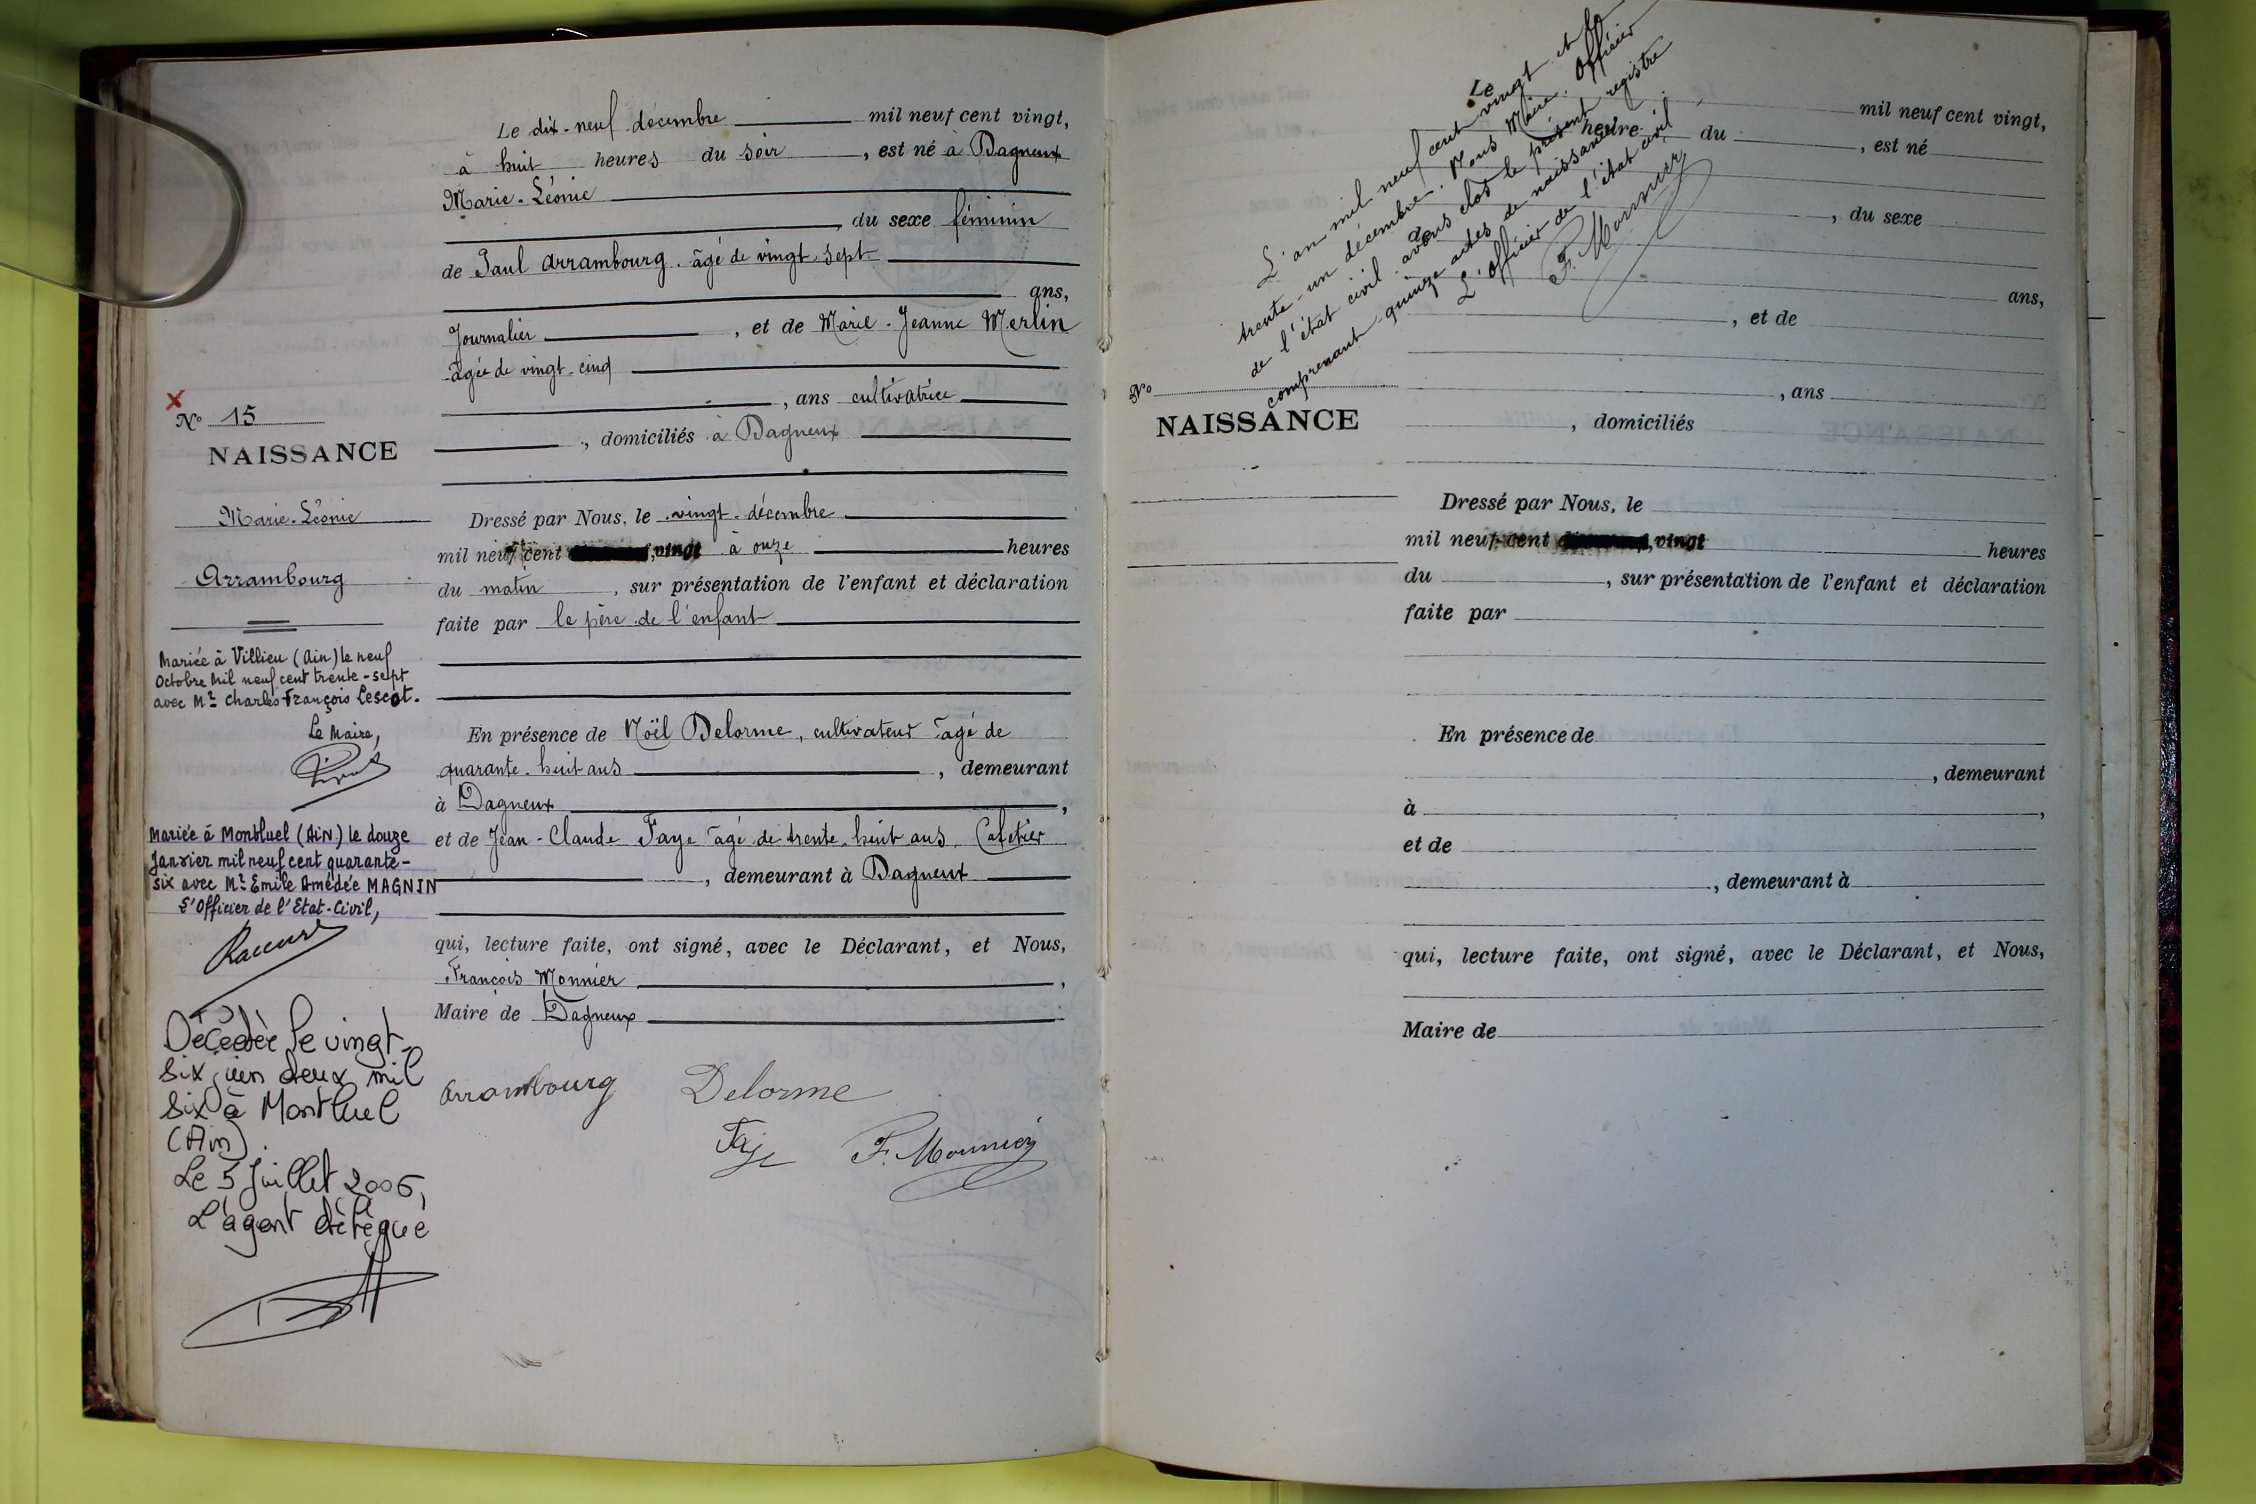 Le dix-neuf décembre mil neuf cent vingt,
à huit heures du soir, est né à Dagneux
Marie-Léonie
, du sexe féminin
de Paul Arrambourg, âgé de vingt-sept
ans,
Journalier, et de Marie-Jeanne Merlin
âgée de vingt-cinq
, ans cultivatrice
, domiciliés à Dagneux
Dressé par Nous, le vingt décembre
mil neuf cent vingt à onze heures
du matin, sur présentation de l'enfant et déclaration
faite par le père de l'enfant
En présence de Noël Delorme, cultivateur âgé de
quarante-huit ans, demeurant
à Dagneux,
et de Jean-Claude Faye âgé de trente-huit ans, Cafetier
, demeurant à Dagneux
qui, lecture faite, ont signé, avec le Déclarant, et Nous,
François Monnier,
Maire de Dagneux
Arrambourg Delorme
Faye F. Monnier
N° 15
NAISSANCE
Marie-Léonie
Arrambourg
Mariée à Villieu (Ain) le neuf
Octobre Mil neuf cent trente-sept
avec Mr Charles François Lescot.
Le Maire,
Mariée à Montluel (AiN) le douze
Janvier mil neuf cent quarante-
six avec Mr Emile Amédée MAGNIN
L'Officier de l'Etat-Civil,
Décédée le vingt-
six juin deux mil
six à Montluel
(Ain)
Le 5 Juillet 2006,
L'agent délégué
L'an mil neuf cent vingt et le
trente-un décembre. Nous Maire, Officier
de l'état civil avons clos le présent registre
comprenant quinze actes de naissance
L'Officier de l'état civil
F. Monnier
N°
NAISSANCE
Le mil neuf cent vingt,
à heure du, est né
, du sexe
de
ans,
, et de
, ans
, domiciliés
Dressé par Nous, le
mil neuf cent vingt heures
du, sur présentation de l'enfant et déclaration
faite par
En présence de
, demeurant
à,
et de
, demeurant à
qui, lecture faite, ont signé, avec le Déclarant, et Nous,
Maire de